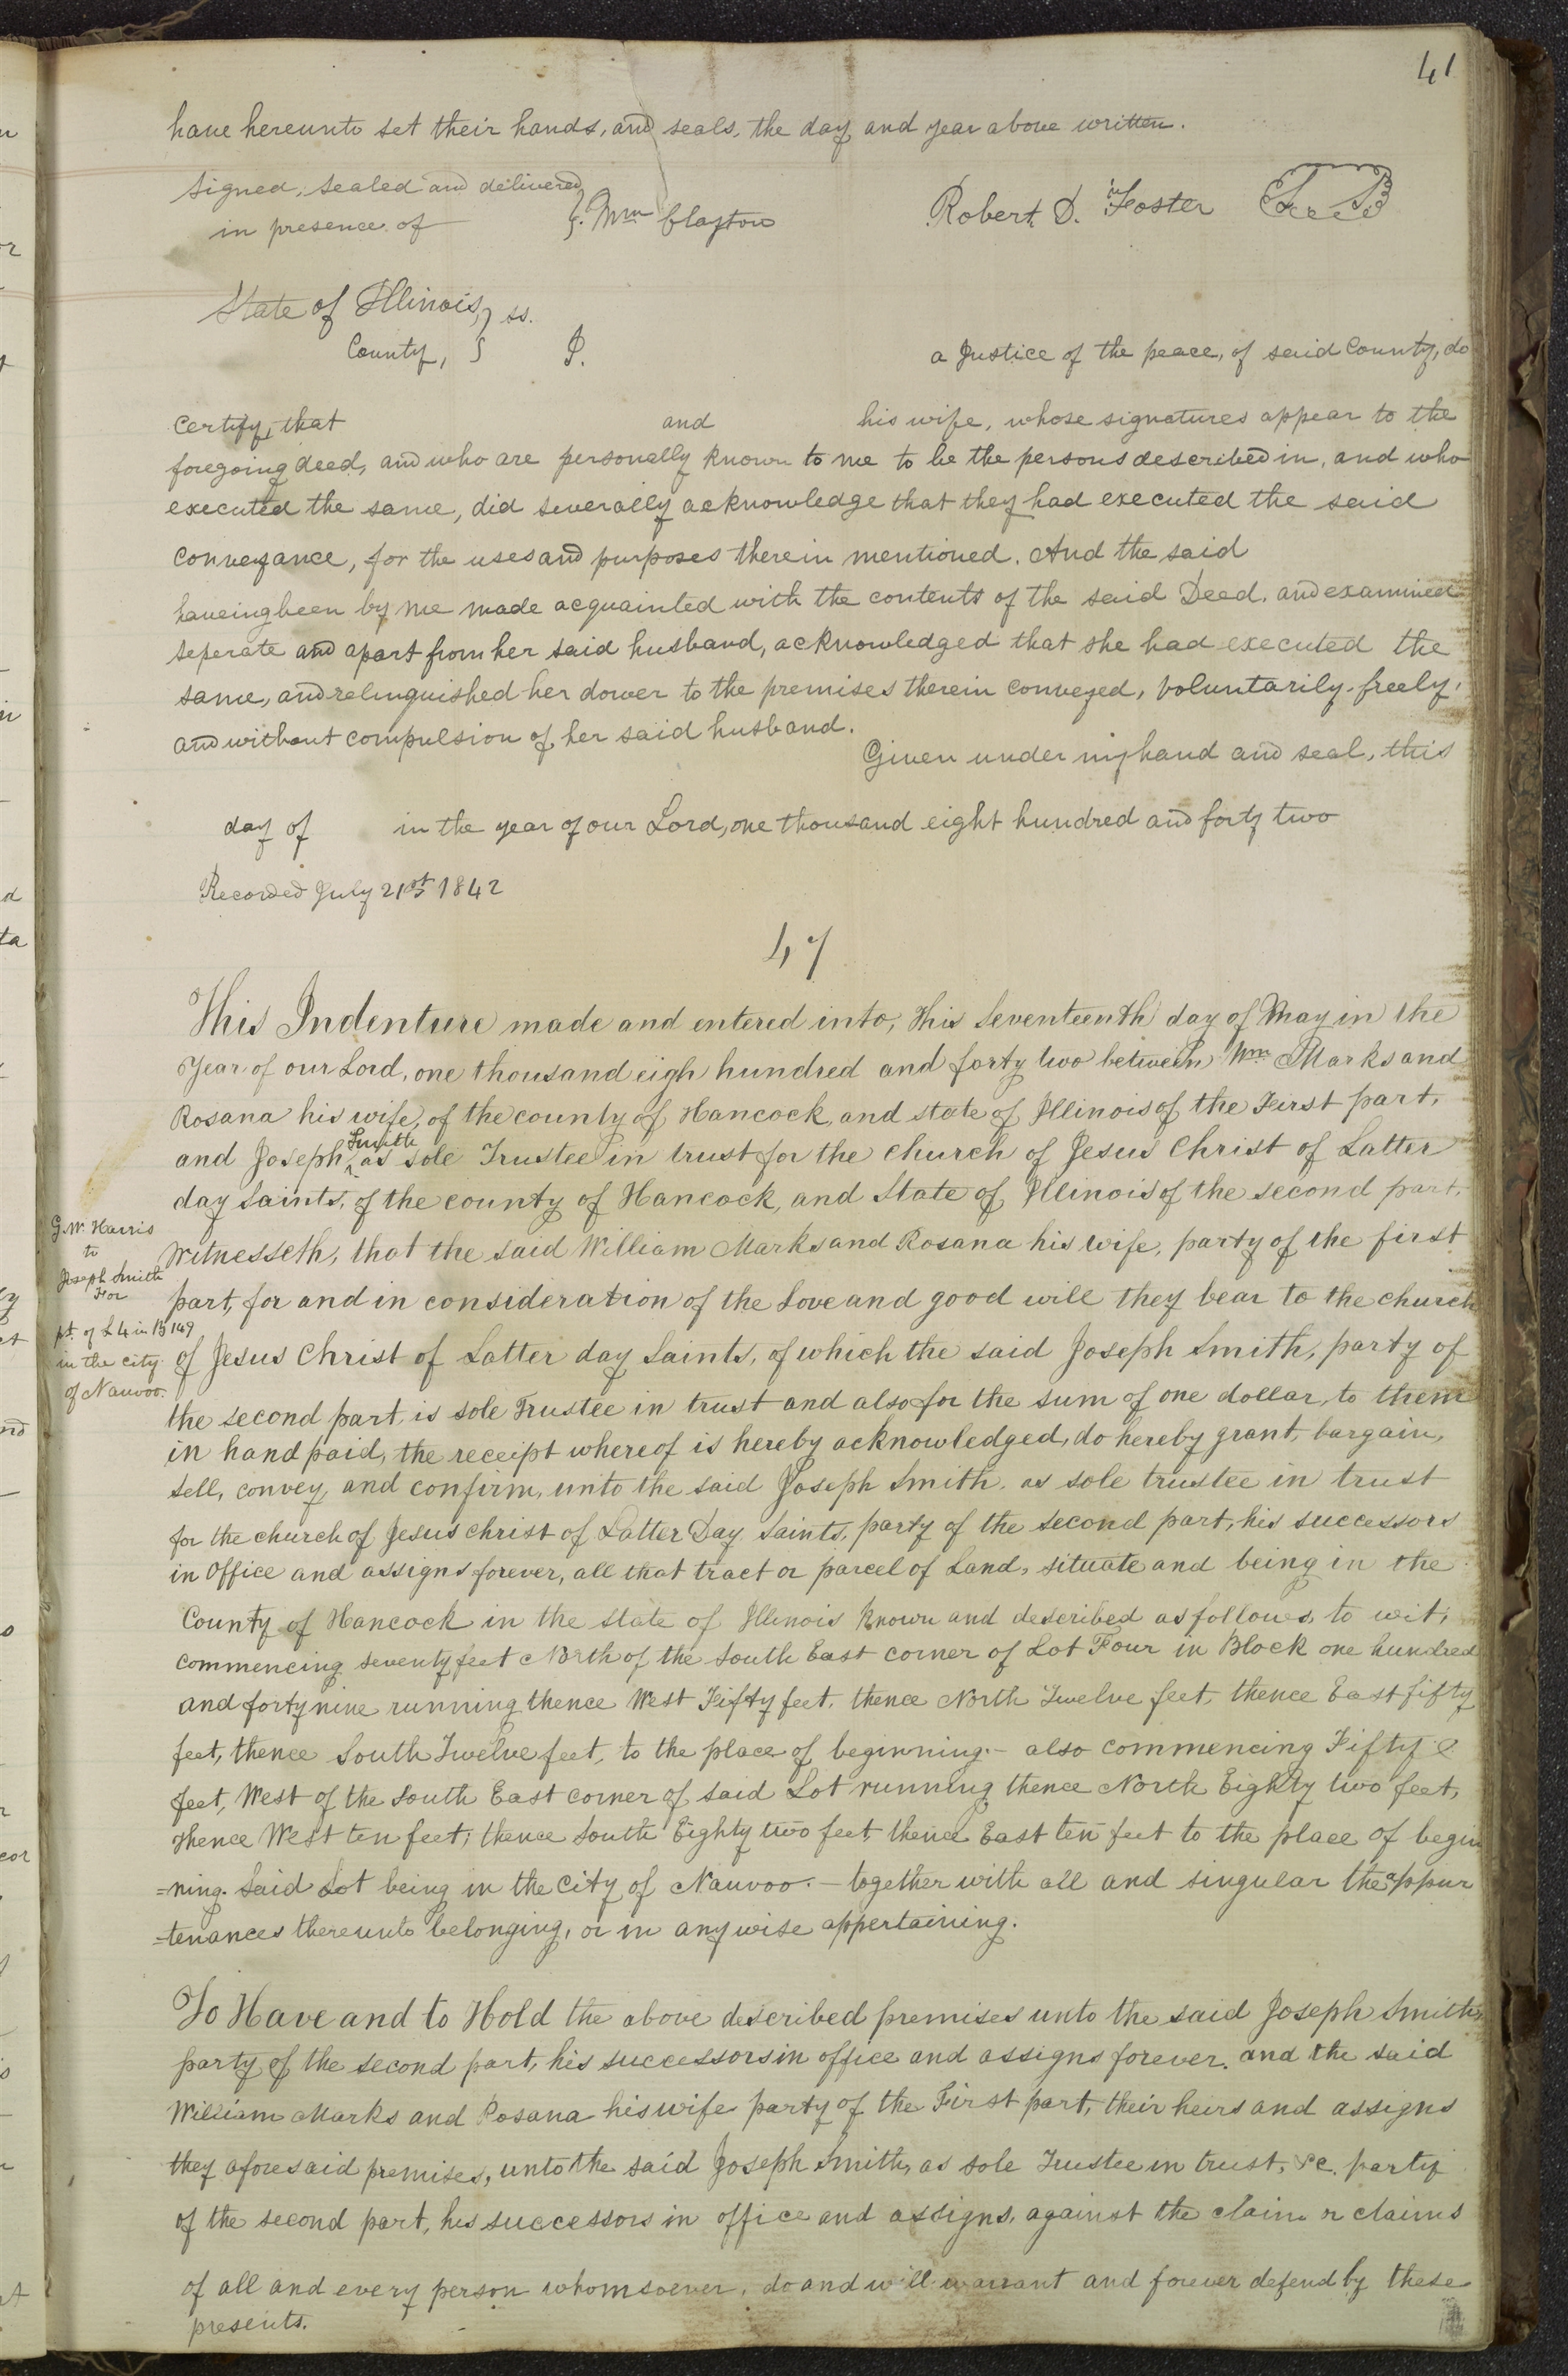 41
have hereunto set their hands, and seals, the day and year above written.
signed, sealed and delivered
in presence of } Wm Clayton Robert D. Foster
State of Illinois, } ss.
County, } I. a Justice of the peace, of said County, do
certify, that and his wife, whose signatures appear to the
foregoing deed, and who are personally known to me to be the persons described in, and who
executed the same, did severally acknowledge that they had executed the said
conveyance, for the uses and purposes therein mentioned. And the said
haveing been by me made acquainted with the contents of the said Deed, and examined
seperate and apart from her said husband, acknowledged that she had executed the
same, and relinquished her dower to the premises therein conveyed, voluntarily, freely,
and without compulsion of her said husband.
Given under my hand and seal, this
day of in the year of our Lord, one thousand eight hundred and forty two
Recorded July 21st 1842
47
This Indenture made and entered into, this Seventeenth day of May in the
Year of our Lord, one thousand eigh hundred and forty two between Wm Marks and
Rosana his wife, of the county of Hancock, and state of Illinois of the First part,
and Joseph Smith as sole Trustee in trust for the church of Jesus Christ of Latter
day Saints, of the county of Hancock, and State of Illinois of the second part,
G.W. Harris
to
Joseph Smith
For
pt. of L 4 in B 149
in the city
of Nauvoo.
Witnesseth, that the said William Marks and Rosana his wife, party of the first
part, for and in consideration of the Love and good will they bear to the church
of Jesus Christ of Latter day Saints, of which the said Joseph Smith, party of
the second part, is sole Trustee in trust and also for the sum of one dollar, to them
in hand paid, the receipt whereof is hereby acknowledged, do hereby grant, bargain,
sell, convey, and confirm, unto the said Joseph Smith, as sole trustee in trust
for the church of Jesus christ of Latter Day Saints, party of the second part, his successors
in Office and assigns forever, all that tract or parcel of Land, situate and being in the
County of Hancock in the state of Illinois Known and described as follows, to wit;
commencing seventy feet North of the South East corner of Lot Four in Block one hundred
and forty nine running thence West Fifty feet, thence North Twelve feet, thence East fifty
feet, thence South Twelve feet, to the place of beginning.- also commencing Fifty
feet, West of the South East corner of said Lot running thence North Eighty two feet,
thence West ten feet; thence South Eighty two feet, thence East ten feet to the place of begin
=ning. Said Lot being in the City of Nauvoo.- together with all and singular the appur
=tenances thereunto belonging, or in any wise appertaining.
To Have and to Hold the above described premises unto the said Joseph Smith,
party of the second part, his successors in office and assigns forever. and the said
William Marks and Rosana his wife party of the First part, their heirs and assigns
they aforesaid premises, unto the said Joseph Smith, as sole Trustee in trust, &c. party
of the second part, his successors in office and assigns, against the claim or claims
of all and every person whomsoever, do and will warrant and forever defend by these
presents.